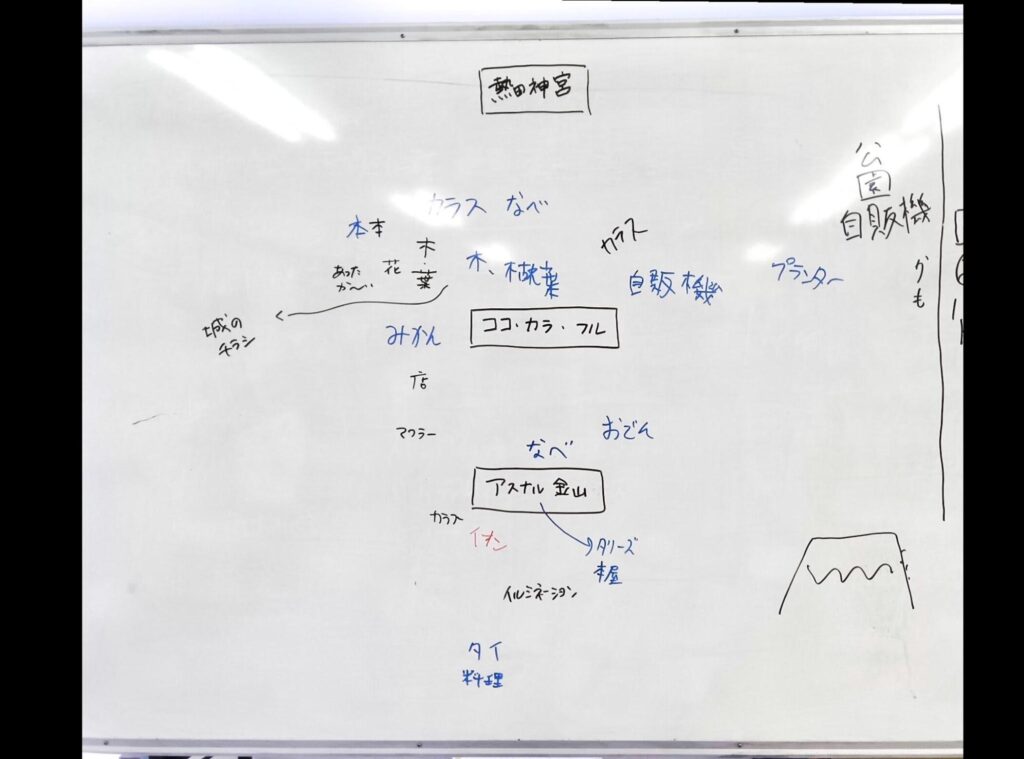 熱田神宮
公園
自販機
かも
カラス なべ
カラス
本本
木・葉
花
あった
か〜い
木、植葉
自販機
プランター
城の
チラシ
みかん
ココ・カラ・フル
店
マフラー
なべ
おでん
アスナル金山
カラス
イオン
タリーズ
本屋
イルミネーション
タイ
料理